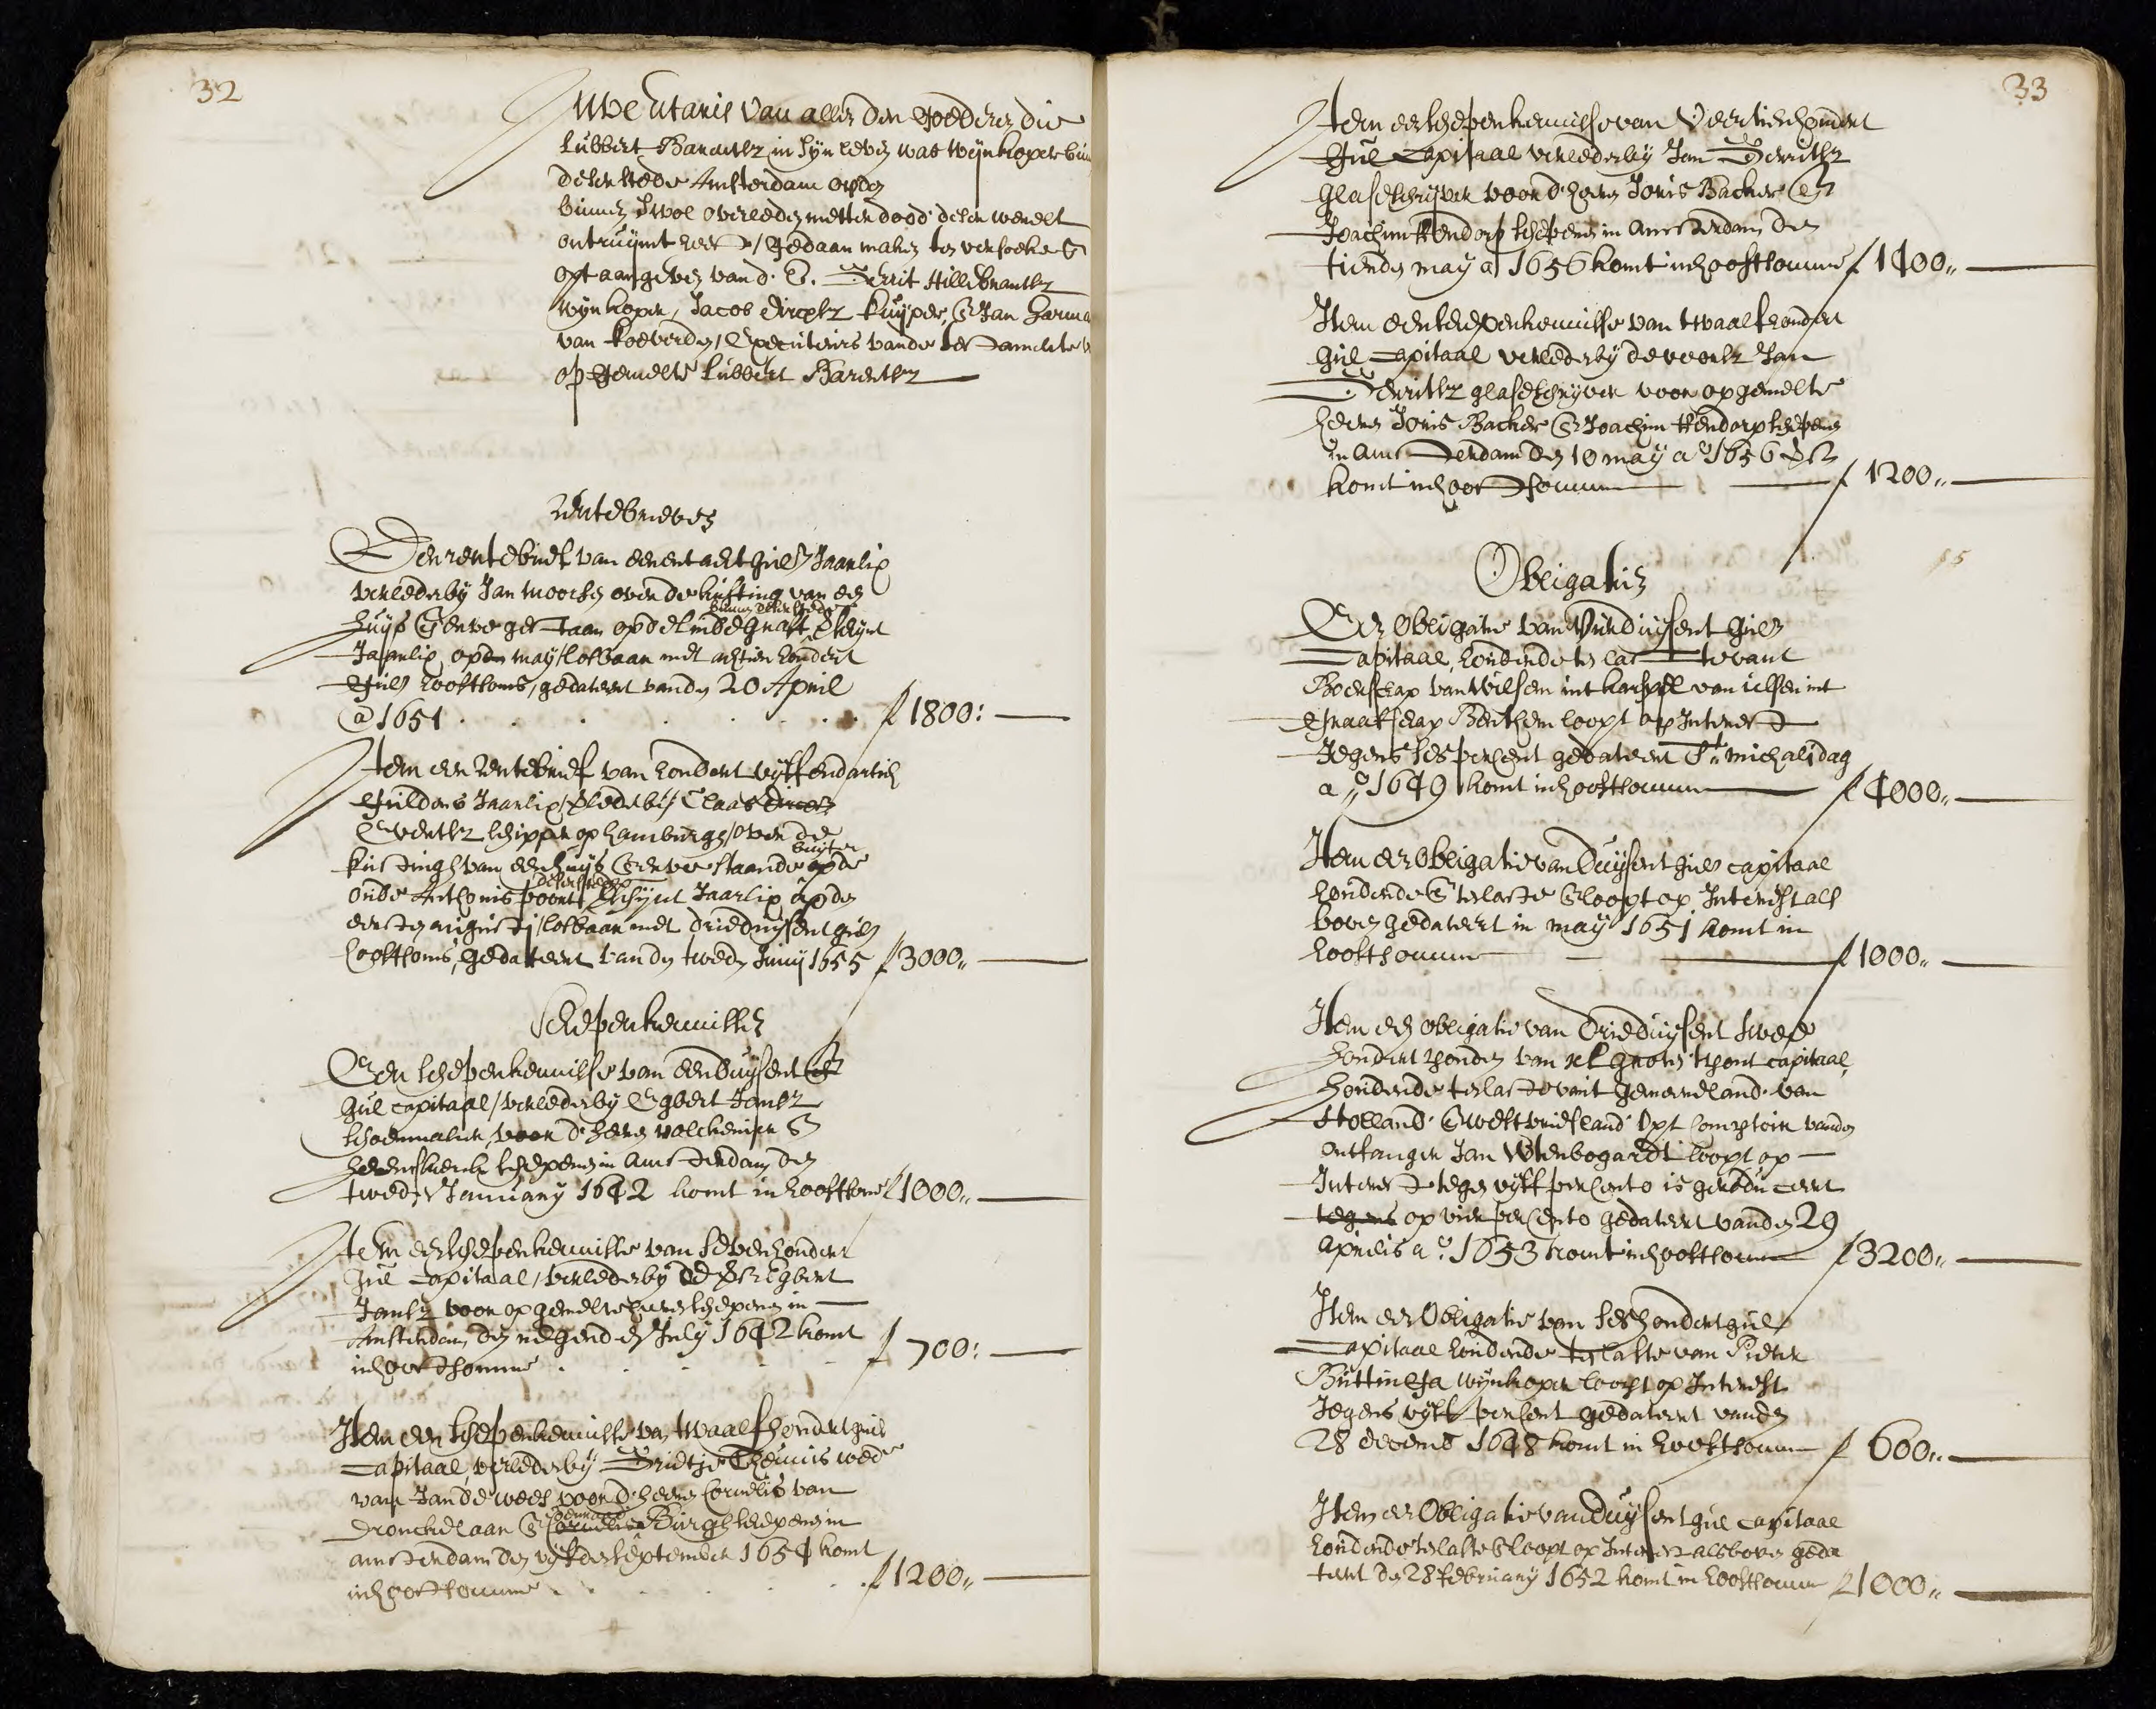 32
Inventaris van alle den Goederen die
Lubbert Barentsz in sijn leven was wijnkoper bin
deser stede Amsterdam op den
binnen Swol overleden metter dood deser werelt
ontruijmt heeft / gedaan maken ten versoeke &
opt aangeven van d. E. Gerrit Hillebrantsz
wijnkoper, Jacob Dircksz kuijper, & Jan Harma
van Koeverden / Executeurs vande testamente v
opgemelte Lubbert Barentsz
Rentebrieven
Een rentebrief van eenentacht guls Jaarlix
verleden by Jan woorsen over de kusting van een
huijs & erve gestaan op de Lindegraft binnen deser stede verschijnt
Jaarlix opden may / losbaar met achtien hondert
guls hooftsoms, gedateert vanden 20 April
a° 1651 . . . . . f 1800:
Item een rentebrief van hondert vijff en dartich
guldens Jaarlix / verleden by Claas Dircxz
Evertsz schipper op hamburgh / over de
kustingh van een huijs & erve staande buyten op de
oude Anthonis poort deser stede verschijnt Jaarlix op den
eersten augusti / losbaar met drie duijsent guls
hooftsoms, gedateert vanden tweden Junij 1655 f 3000,,
Schepenkennissen
Een schepenkennisse van een duijsent
gul capitaal / verleden by Egbert Jansz
schoenmaker, voor d'heeren valckenier &
heemskerck schepenen in Amsterdam den
tweden January 1642 komt in hooftsome f 1000,,
Item een schepenkennisse van sevenhondert
gul capitaal / verleden by de voorsz Egbert
Jansz voor opgemelte heeren schepenen in
Amsterdam den negenden July 1642 komt
in hooftsomme . . . . f 700:
Item een schepenkennisse van twaalfhondert guls
capitaal, verleden by Grietje Theunis wede
van Jan de wees voor d'heeren Cornelis van
Dronckelaar & Coenraad Burgh schepenen in
amsterdam den vijfden september 1654 komt
in hooftsomme . . . . f 1200,,
33
Item een schepenkennisse van veertienhondert
gul capitaal verleden by Jan Gerritsz
glaseschryver voor d'heren Joris Backer &
Joachim Rendorp schepenen in Amsterdam den
tienden may a° 1656 komt in hooftsomme f 1400,,
Item een schepenkennisse van twaalfhondert
gul capitaal verleden by de voorsz Jan
Gerritsz glaseschryver voor opgemelte
heeren Joris Backer & Joachim Rendorp schepenen
in Amsterdam den 10 may a° 1656
komt in hooftsomme f 1200,,
Obligatien
Een Obligatie van Vierduijsent guls
Capitaal, houdende ten laste vant
Boerschap van Wilsem int karspel van ulsen int
Graafschap Benthem loopt op Interest
Jegens ses percent gedateert St. michalisdag
a° 1649 komt in hooftsomme f 4000,,
Item een Obligatie van Duijsent guls capitaal
houdende & ten laste & loopt op Interest als
boven gedateert in may 1651 komt in
hooftsomme f 1000,,
Item een obligatie van Drieduijsent twee
hondert ponden van xl grooten tpont capitaal,
houdende ten laste vant gemeene land van
Holland & Westvriesland opt comptoir vanden
ontfanger Jan Wtenbogardt loopt op
Interest tegen vijff percento is gereduceert
tegens op vier percento gedateert vanden 29
Aprilis a° 1653 komt in hooftsomme f 3200,,
Item een Obligatie van seshondert gul
Capitaal houdende ten laste van Pieter
Buttinga wijnkoper loopt op Interest
Jegens vijff percent gedateert vanden
28 decemb 1648 komt in hooftsomme f 600,,
Item een Obligatie van duijsent gul capitaal
houdende ten laste & loopt op Interest als boven geda
teert den 28 february 1652 komt in hooftsomme f 1000,,